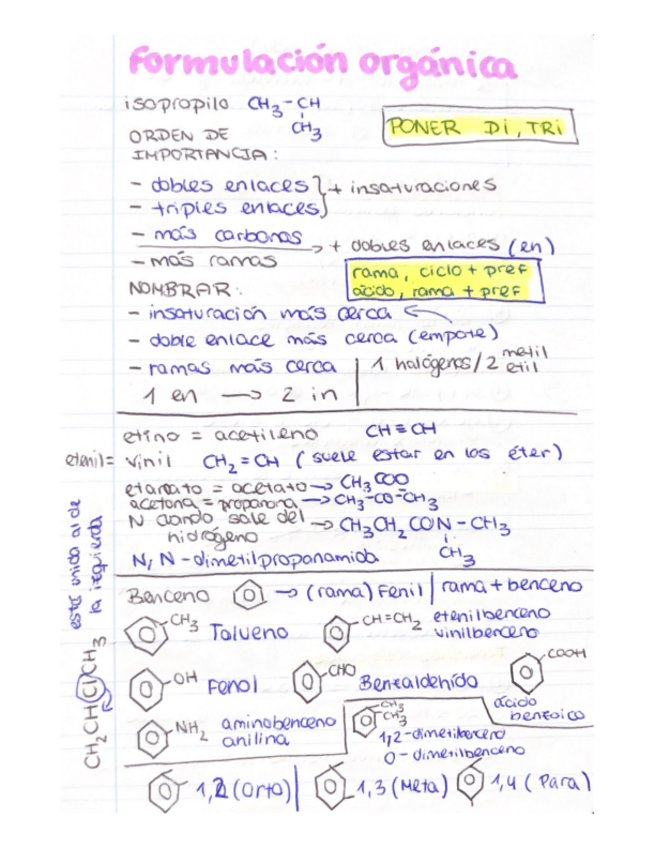 Formulación orgánica
isopropilo CH3-CH
CH3
PONER DI, TRI
ORDEN DE
IMPORTANCIA:
- dobles enlaces } + insaturaciones
- triples enlaces
- más carbonos
→ + dobles enlaces (en)
- más ramas
rama, ciclo + pref
ácido, rama + pref
NOMBRAR:
- insaturación más cerca ←
- doble enlace más cerca (empate)
- ramas más cerca | 1 halógenos/2 metil
etil
1 en → 2 in
etino = acetileno CH≡CH
etenil = vinil CH2=CH (suele estar en los éter)
etanato = acetato → CH3COO
acetona = propanona → CH3-CO-CH3
N cuando sale del → CH3CH2CON-CH3
hidrógeno CH3
N,N-dimetilpropanamida
está unido al de
la izquierda
CH2CHClCH3
Benceno → (rama) Fenil | rama + benceno
CH3 Tolueno
CH=CH2 etenilbenceno
vinilbenceno
OH Fenol
CHO Benzaldehído
COOH
ácido
benzoico
NH2 aminobenceno
anilina
CH3
CH3
1,2-dimetilbenceno
O-dimetilbenceno
1,2 (Orto) | 1,3 (Meta) 1,4 (Para)